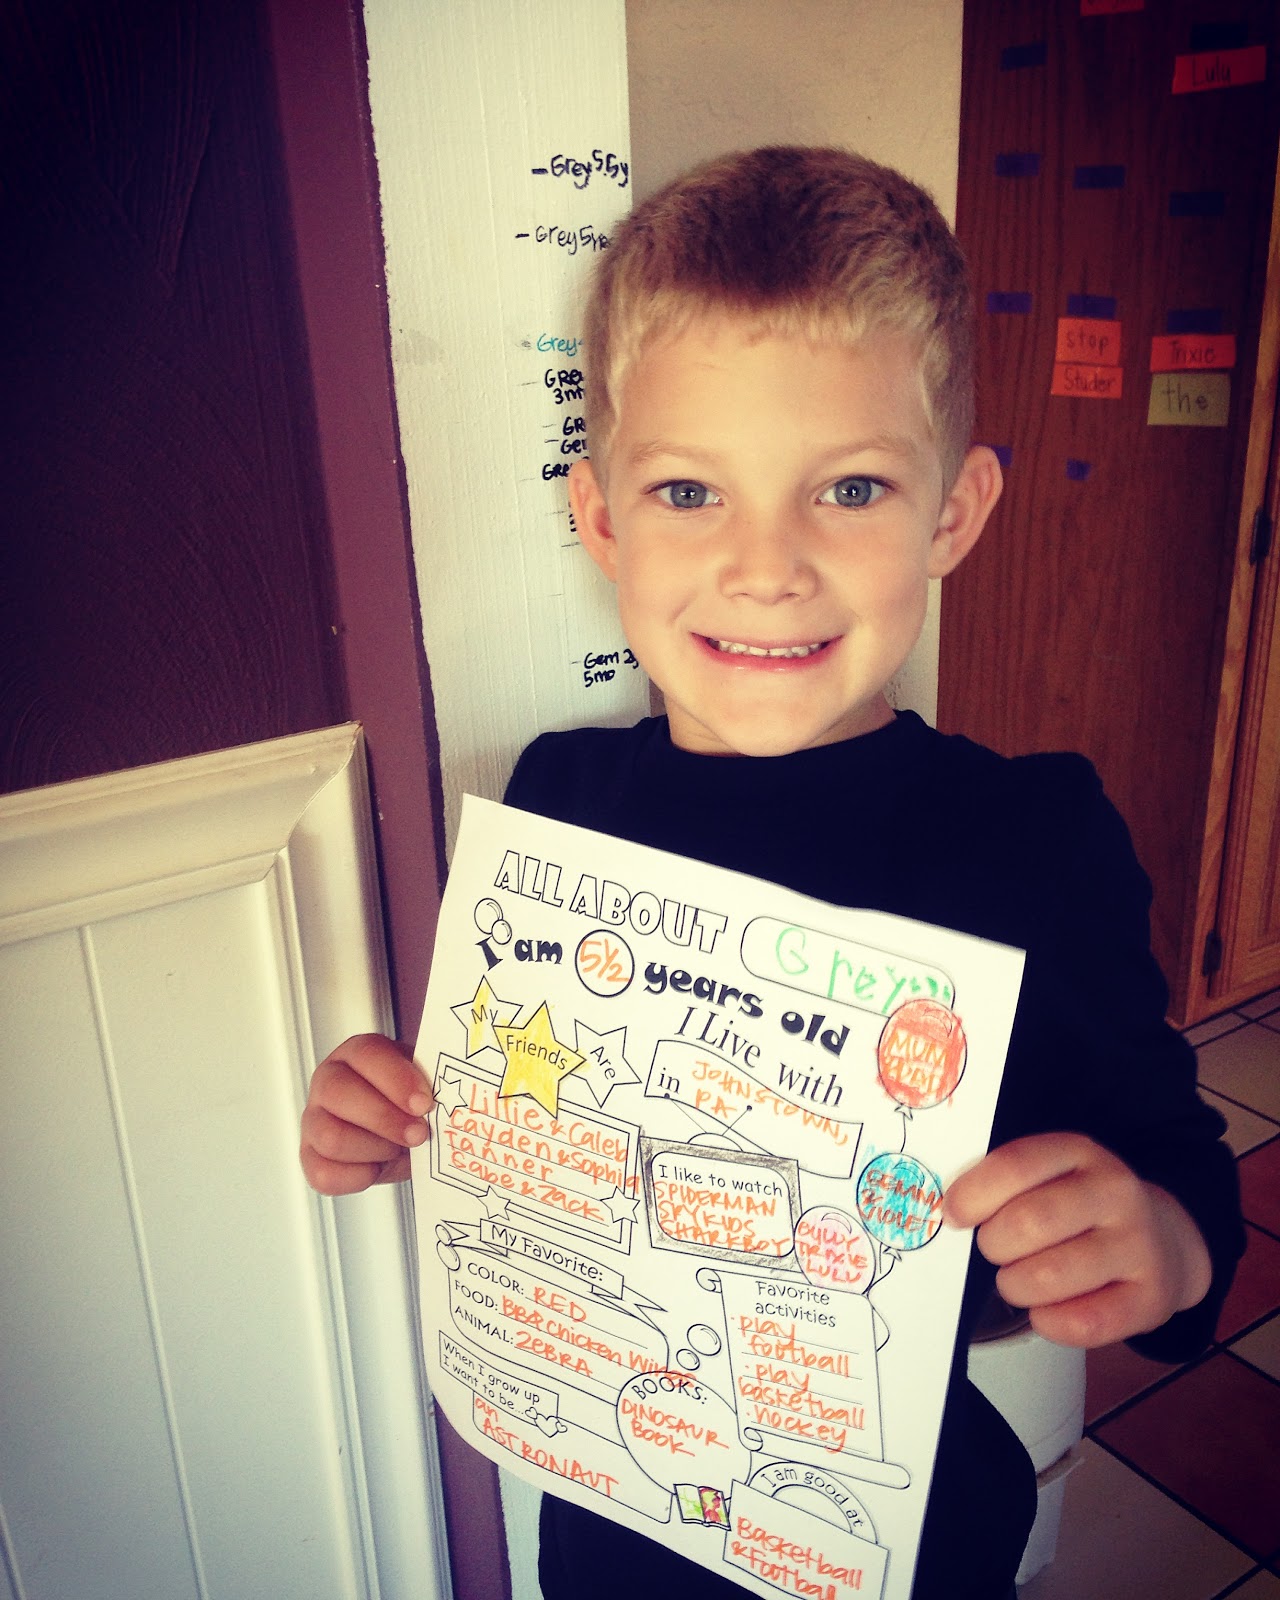 -Grey 5.5y
-Grey 5yrs
Grey
GRE
3m
GR
Gem
GRE
Gem 2y
5mo
Lulu
stop
Studer
Trixie
the
ALL ABOUT
Greyson
I am 5½ years old
My Friends Are
Lillie & Caleb
Cayden & Sophia
Tanner
Gabe & Zack
I Live with
MUM
& DAD
GEMMA
& VIOLET
TRIXIE
LULU
in JOHNSTOWN,
PA
I like to watch
SPIDERMAN
SPY KIDS
SHARKBOY
My Favorite:
COLOR: RED
FOOD: BBQ chicken Wings
ANIMAL: ZEBRA
When I grow up
I want to be...
an
ASTRONAUT
BOOKS:
DINOSAUR
BOOK
Favorite
activities
· play
football
· play
basketball
· hockey
I am good at
Basketball
& Football